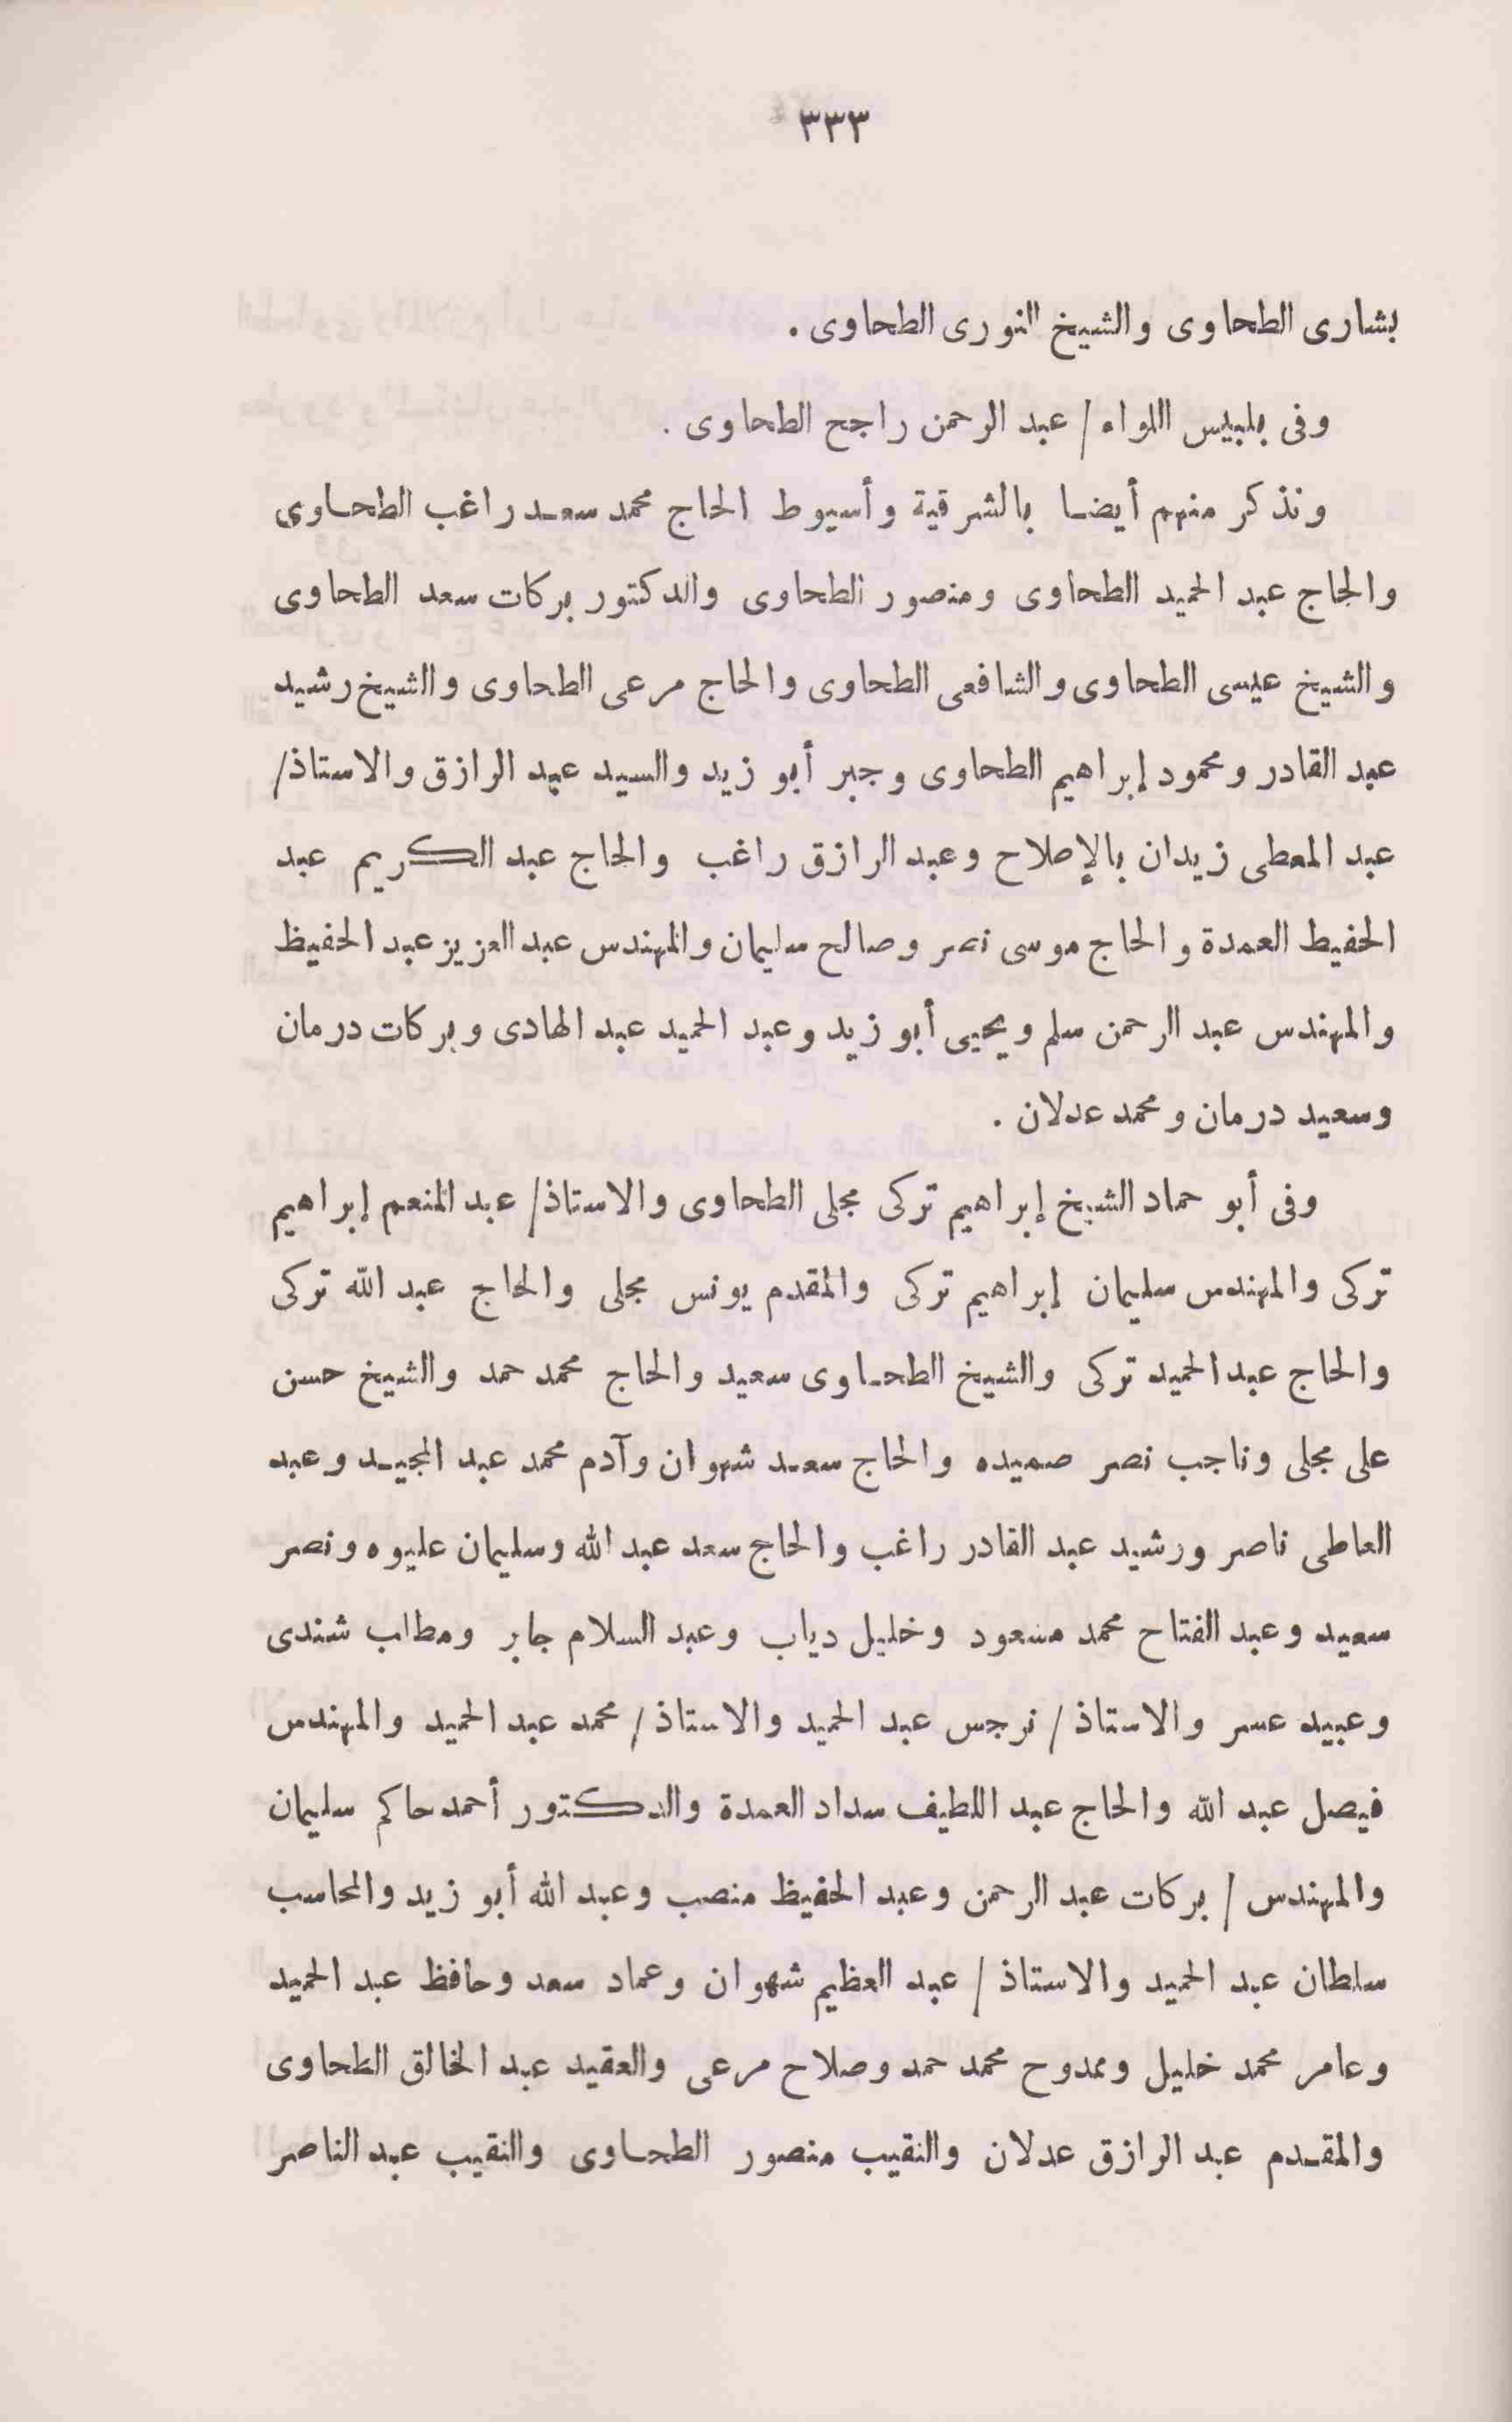 ٣٣٣
بشارى الطحاوى والشيخ النورى الطحاوى .
وفى بلبيس اللواء / عبد الرحمن راجح الطحاوى .
ونذكر منهم أيضا بالشرقية وأسيوط الحاج محمد سعد راغب الطحاوى
والحاج عبد الحميد الطحاوى ومنصور الطحاوى والدكتور بركات سعد الطحاوى
والشيخ عيسى الطحاوى والشافعى الطحاوى والحاج مرعى الطحاوى والشيخ رشيد
عبد القادر ومحمود إبراهيم الطحاوى وجبر أبو زيد والسيد عبد الرازق والاستاذ/
عبد المعطى زيدان بالإصلاح وعبد الرازق راغب والحاج عبد الكريم عبد
الحفيط العمدة والحاج موسى نصر وصالح سليمان والمهندس عبد العزيز عبد الحفيظ
والمهندس عبد الرحمن سلم ويحيى أبو زيد وعبد الحميد عبد الهادى وبركات درمان
وسعيد درمان ومحمد عدلان .
وفى أبو حماد الشيخ إبراهيم تركى مجلى الطحاوى والاستاذ/ عبد المنعم إبراهيم
تركى والمهندس سليمان إبراهيم تركى والمقدم يونس مجلى والحاج عبد الله تركى
والحاج عبد الحميد تركى والشيخ الطحاوى سعيد والحاج محمد حمد والشيخ حسن
على مجلى وناجب نصر صميده والحاج سعد شهوان وآدم محمد عبد المجيد وعبد
العاطى ناصر ورشيد عبد القادر راغب والحاج سعد عبد الله وسليمان عليوه ونصر
سعيد وعبد الفتاح محمد مسعود وخليل دياب وعبد السلام جابر ومطلب شندى
وعبيد عسر والاستاذ / نرجس عبد الحميد والاستاذ / محمد عبد الحميد والمهندس
فيصل عبد الله والحاج عبد اللطيف سداد العمدة والدكتور أحمد حاكم سليمان
والمهندس / بركات عبد الرحمن وعبد الحفيظ منصب وعبد الله أبو زيد والمحاسب
سلطان عبد الحميد والاستاذ / عبد العظيم شهوان وعماد سعد وحافظ عبد الحميد
وعامر محمد خليل وممدوح محمد حمد وصلاح مرعى والعقيد عبد الخالق الطحاوى
والمقدم عبد الرازق عدلان والنقيب منصور الطحاوى والنقيب عبد الناصر